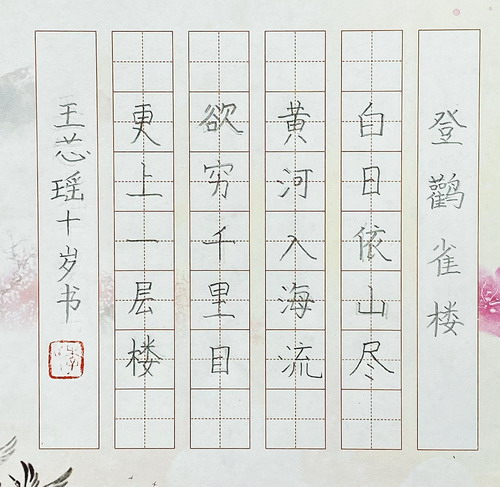 登鹳雀楼
白日依山尽
黄河入海流
欲穷千里目
更上一层楼
王芯瑶十岁书